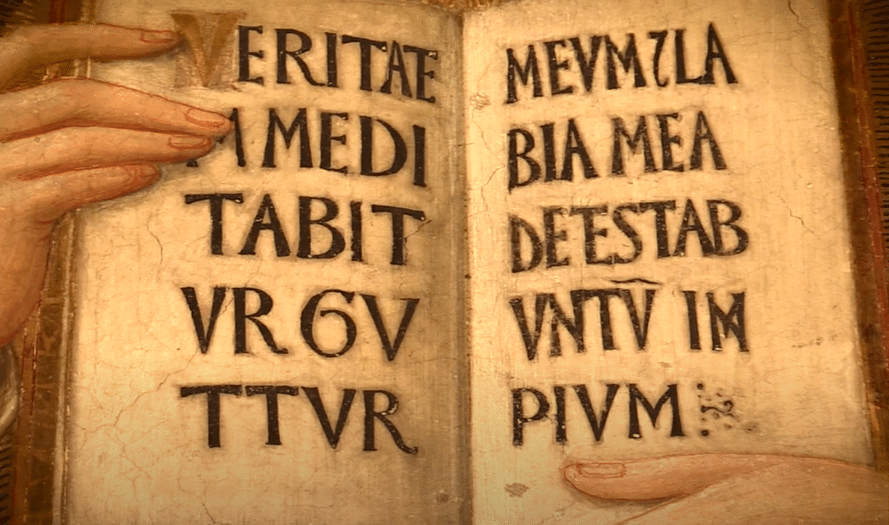 VERITATE
M MEDI
TABIT
VR GV
TTVR
MEVM⁊LA
BIA MEA
DETESTAB
VNTV̄ IM
PIVM